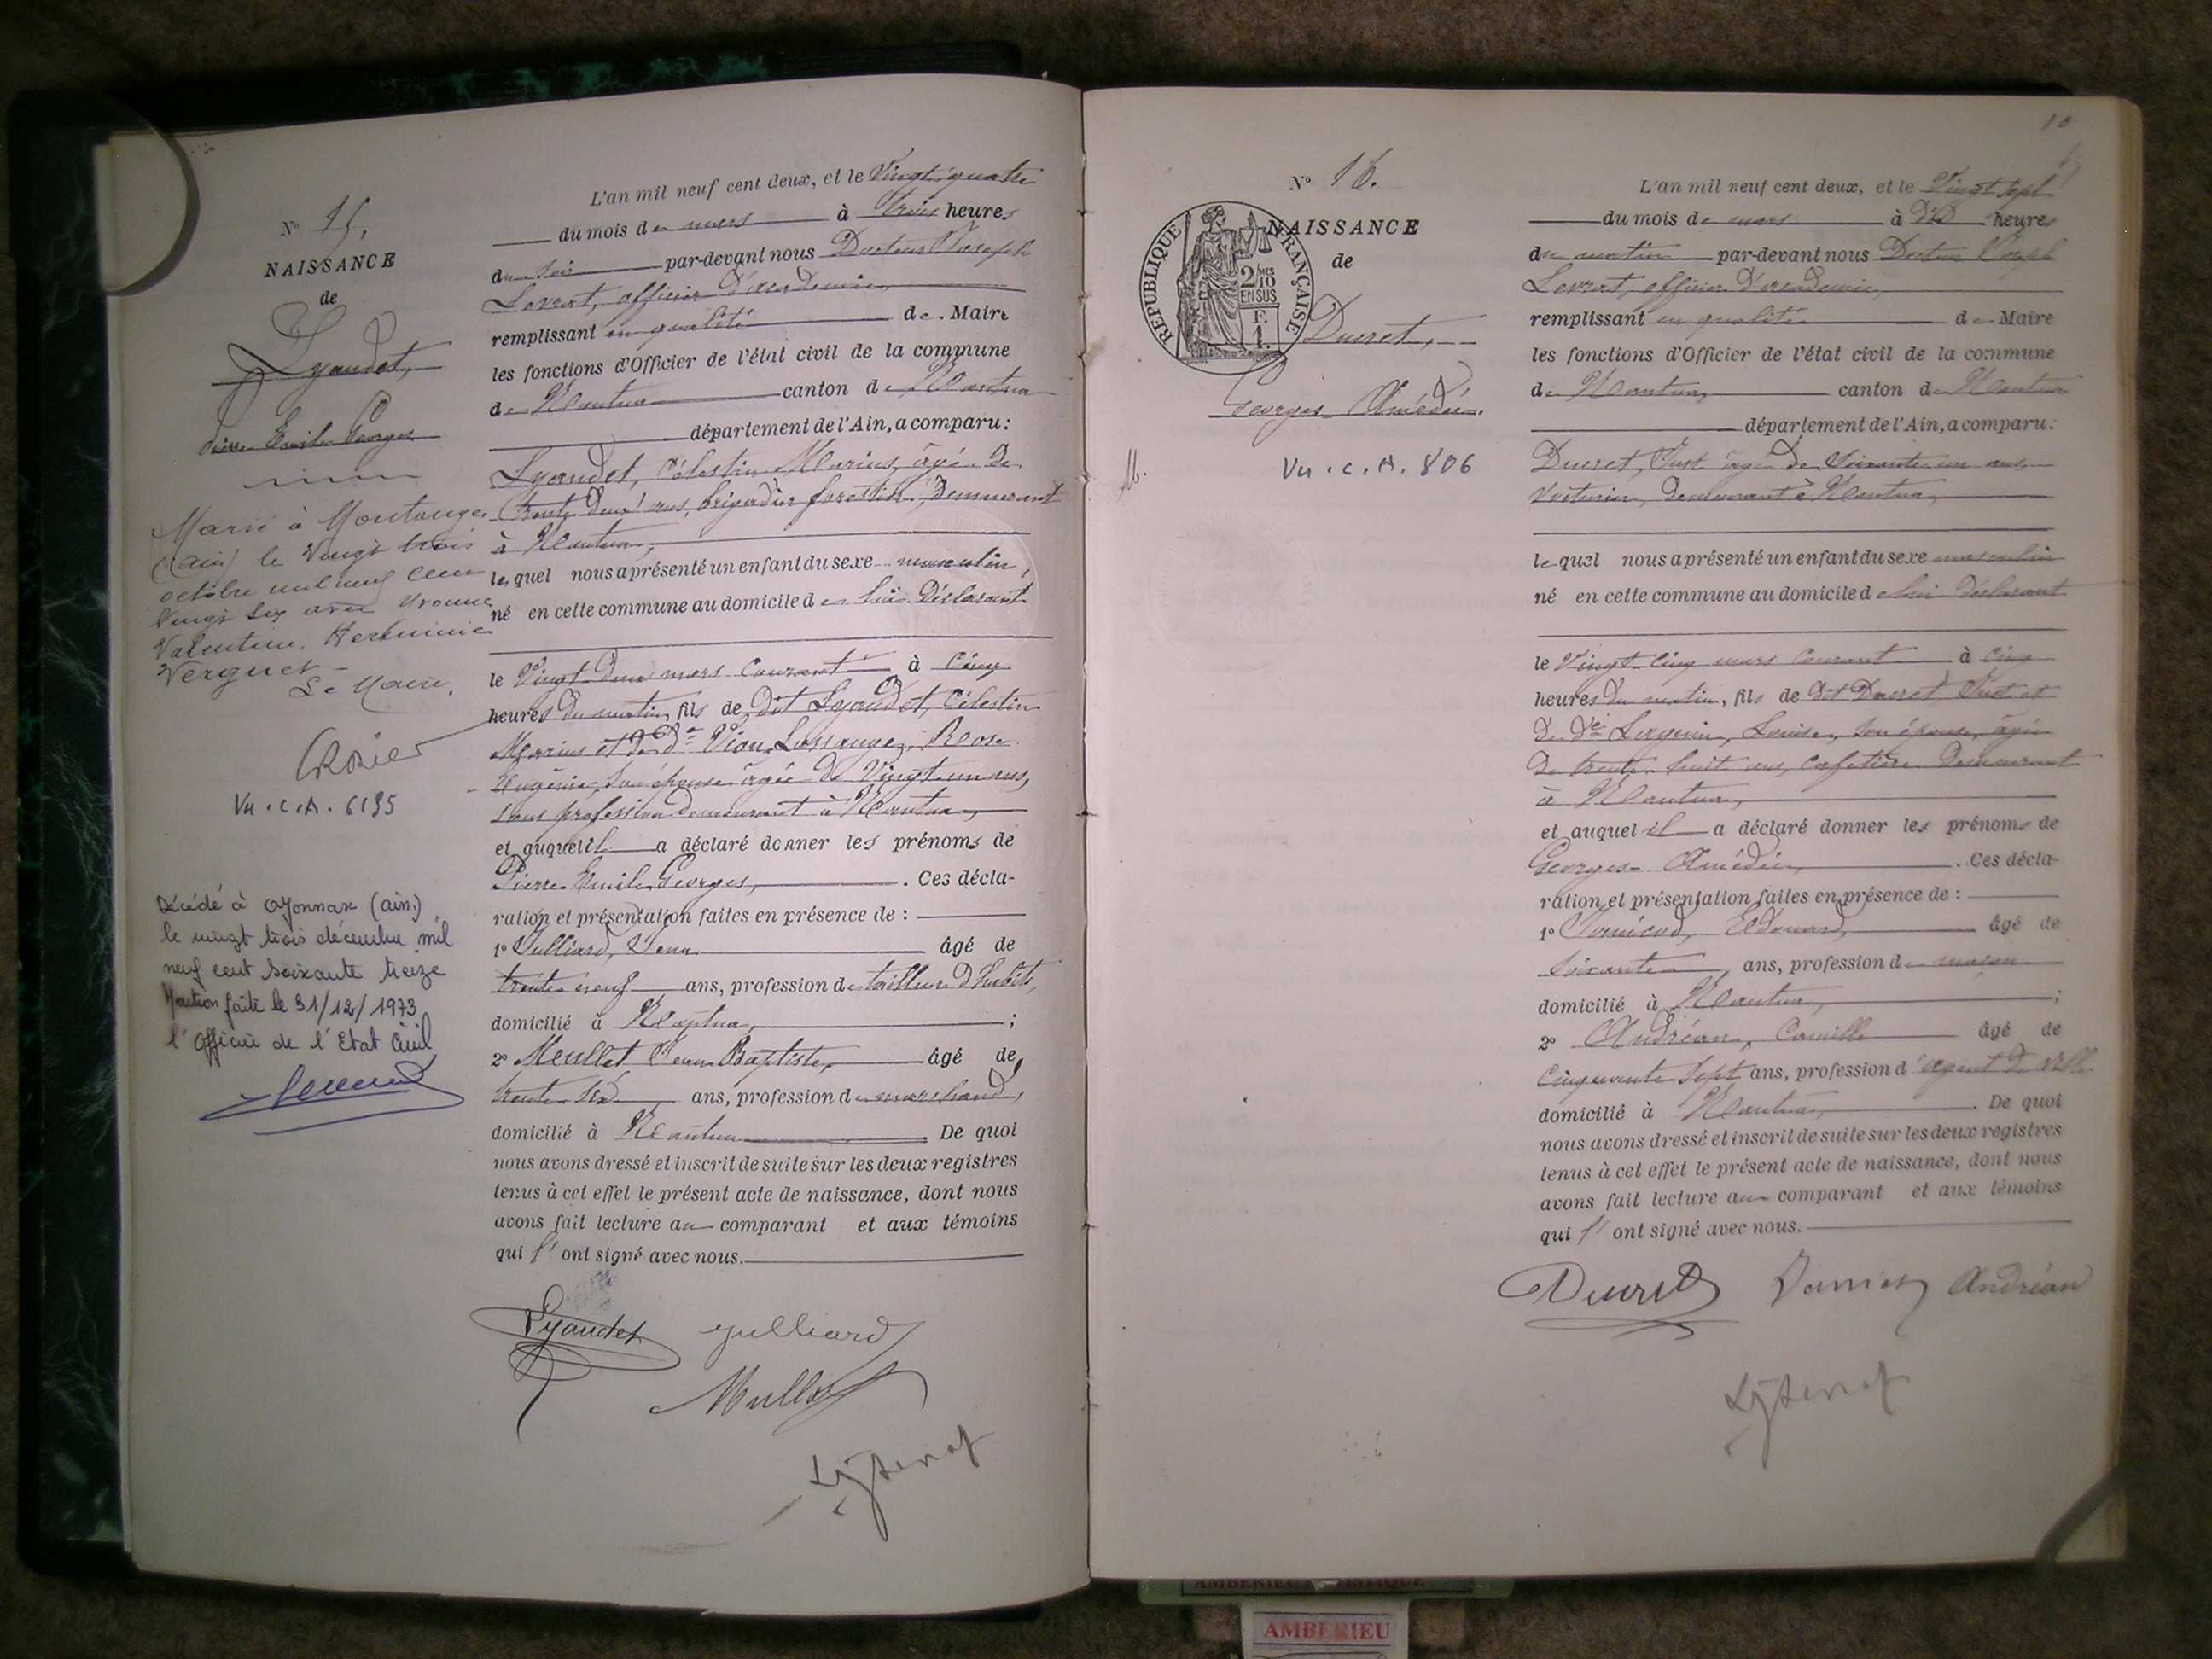 Nº 15.
NAISSANCE
de
Lyaudet,
Pierre Emile Georges
Marié à Montanges
(Ain) le vingt trois
octobre mil neuf cent
vingt six avec Yvonne
Valentine Herminie
Verguet -
Le Maire,
Vu. C.A. 6195
Décédé à Oyonnax (Ain)
le vingt trois décembre mil
neuf cent soixante treize
Mention faite le 31/12/1973
l'Officier de l'Etat Civil
L'an mil neuf cent deux, et le Vingt quatre
du mois de mars à trois heures
du soir par-devant nous Docteur Joseph
Levrat, officier d'académie,
remplissant en qualité de Maire
les fonctions d'Officier de l'état civil de la commune
de Nantua canton de Nantua
département de l'Ain, a comparu:
Lyaudet, Célestin Marius, âgé de
trente deux ans, brigadier forestier, demeurant
à Nantua,
lequel nous a présenté un enfant du sexe masculin,
né en cette commune au domicile de lui déclarant
le Vingt deux mars courant à cinq
heures du matin, fils de dit Lyaudet, Célestin
Marius et de de Rose
Eugénie, son épouse âgée de Vingt un ans,
sans profession demeurant à Nantua
et auquel il a déclaré donner les prénoms de
Pierre Emile Georges, . Ces décla-
ration et présentation faites en présence de :
1º Julliard, Jean âgé de
trente neuf ans, profession de tailleur d'habits,
domicilié à Nantua, ;
2º Meullet Jean Baptiste, âgé de
trente six ans, profession de marchand,
domicilié à Nantua De quoi
nous avons dressé et inscrit de suite sur les deux registres
tenus à cet effet le présent acte de naissance, dont nous
avons fait lecture au comparant et aux témoins
qui l'ont signé avec nous.
Lyaudet Julliard
Mullet
Nº 16.
NAISSANCE
de
RÉPUBLIQUE FRANÇAISE
2/10 EN SUS
F.
1.
Ducret,
Georges Amédée.
Vu. C.A. 806
10
L'an mil neuf cent deux, et le Vingt sept
du mois de mars à dix heures
du matin par-devant nous Docteur Joseph
Levrat, officier d'académie,
remplissant en qualité de Maire
les fonctions d'Officier de l'état civil de la commune
de Nantua, canton de Nantua
département de l'Ain, a comparu:
Ducret, Just âgé de soixante un ans,
voiturier, demeurant à Nantua,
lequel nous a présenté un enfant du sexe masculin
né en cette commune au domicile de lui déclarant
le Vingt cinq mars courant à cinq
heures du matin, fils de dit Ducret, Just et
de Louise, son épouse, âgée
de trente huit ans, cafetière demeurant
à Nantua,
et auquel il a déclaré donner les prénoms de
Georges Amédée, . Ces décla-
ration et présentation faites en présence de :
1º Edouard, âgé de
soixante ans, profession de maçon
domicilié à Nantua, ;
2º Andréan, Camille âgé de
Cinquante sept ans, profession d'agent de ville
domicilié à Nantua, . De quoi
nous avons dressé et inscrit de suite sur les deux registres
tenus à cet effet le présent acte de naissance, dont nous
avons fait lecture au comparant et aux témoins
qui l'ont signé avec nous.
Ducret Andréan
AMBERIEU